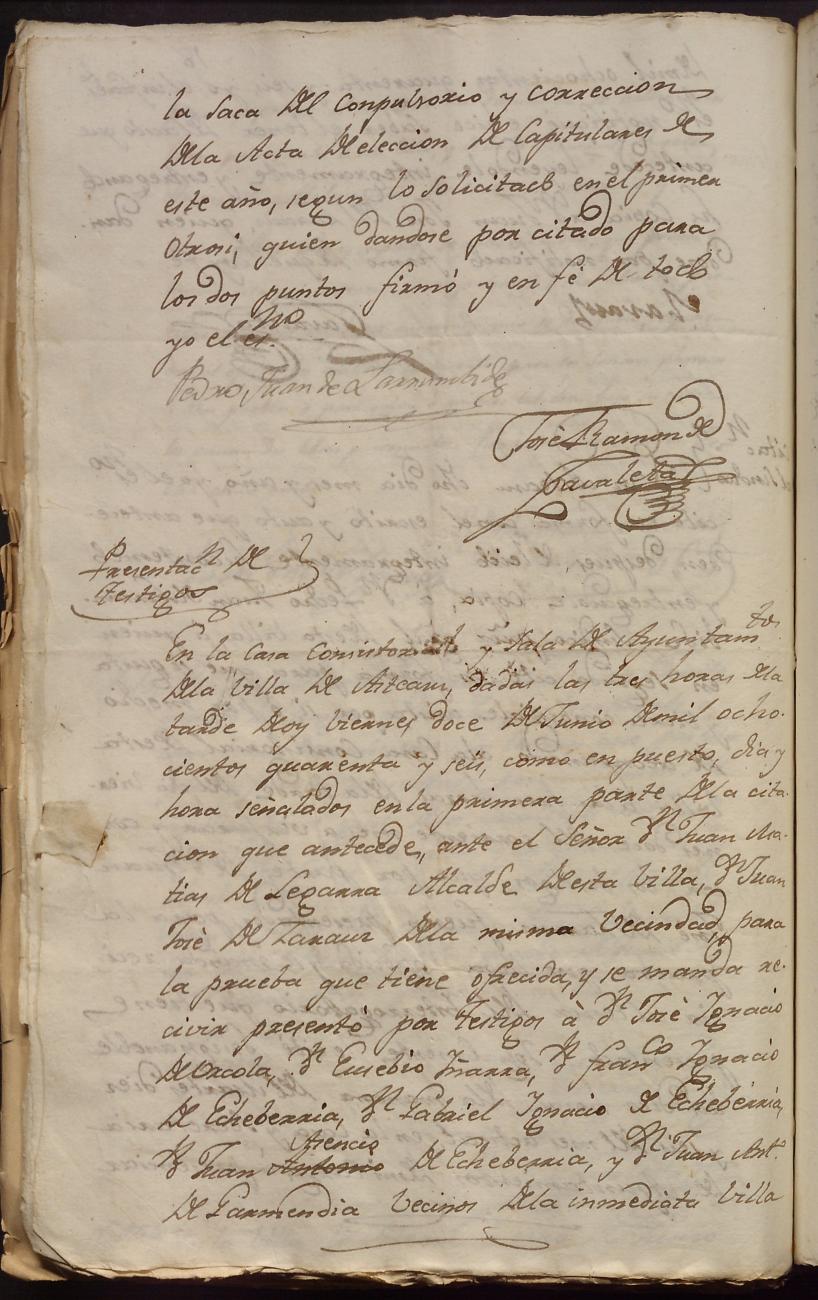 la saca del Conpulsorio y correccion
dela Acta de eleccion de Capitulares de
este año, segun lo solicitado en el primer
otrosi, quien dandose por citado para
los dos puntos firmó y en fé de todo
yo el es.no
Pedro Juan de Larrumbide
José Ramon de
Zavaleta
Presentac.n de
Testigos
En la Casa Consistorial y Sala de Ayuntam.tos
dela Villa de Aizcaur, dadas las tres horas dela
tarde de oy viernes doce de Junio de mil ocho-
cientos quarenta y seis, como en puesto, dia y
hora señalados en la primera parte dela cita-
cion que antecede, ante el Señor D.n Juan Ma-
tias de Legarra Alcalde de esta Villa, D.n Juan
José de Zarauz dela misma Vecindad, para
la prueba que tiene ofrecida, y se manda re-
civir presentó por testigos à D.n José Ignacio
de Orcola, D.n Eusebio Yñarra, D.n Fran.co Ignacio
de Echeberria, D.n Gabriel Ignacio de Echeberria,
Asencio
D.n Juan Antonio de Echeberria, y D.n Juan Ant.o
de Garmendia Vecinos dela inmediata Villa